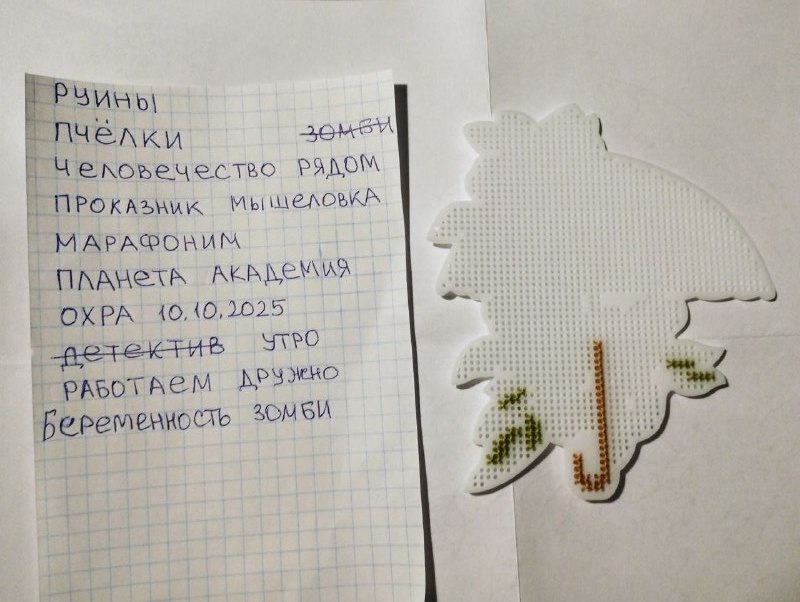 РУИНЫ
ПЧЁЛКИ ЗОМБИ
ЧЕЛОВЕЧЕСТВО РЯДОМ
ПРОКАЗНИК МЫШЕЛОВКА
МАРАФОНИМ
ПЛАНЕТА АКАДЕМИЯ
ОХРА 10.10.2025
ДЕТЕКТИВ УТРО
РАБОТАЕМ ДРУЖНО
БЕРЕМЕННОСТЬ ЗОМБИ